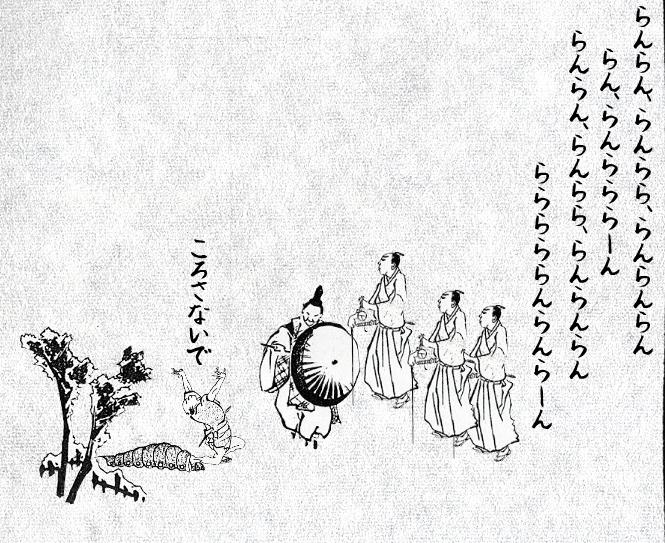 らんらん、らんらら、らんらんらん
らん、らんららら―ん
らんらん、らんらら、らんらんらん
ららららららんらんら―ん
ころさないで